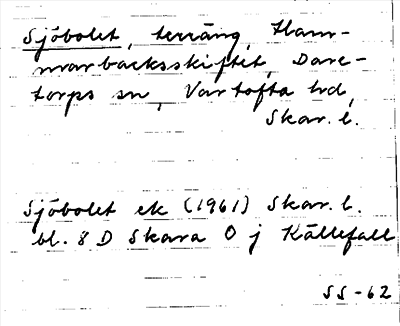 Sjöbolet, terräng, Ham-
marbacksskiftet, Dare-
torps sn, Vartofta hd,
Skar. l.
Sjöbolet ek (1961) Skar. l.
bl. 8 D Skara 0 j Källefall
SS-62